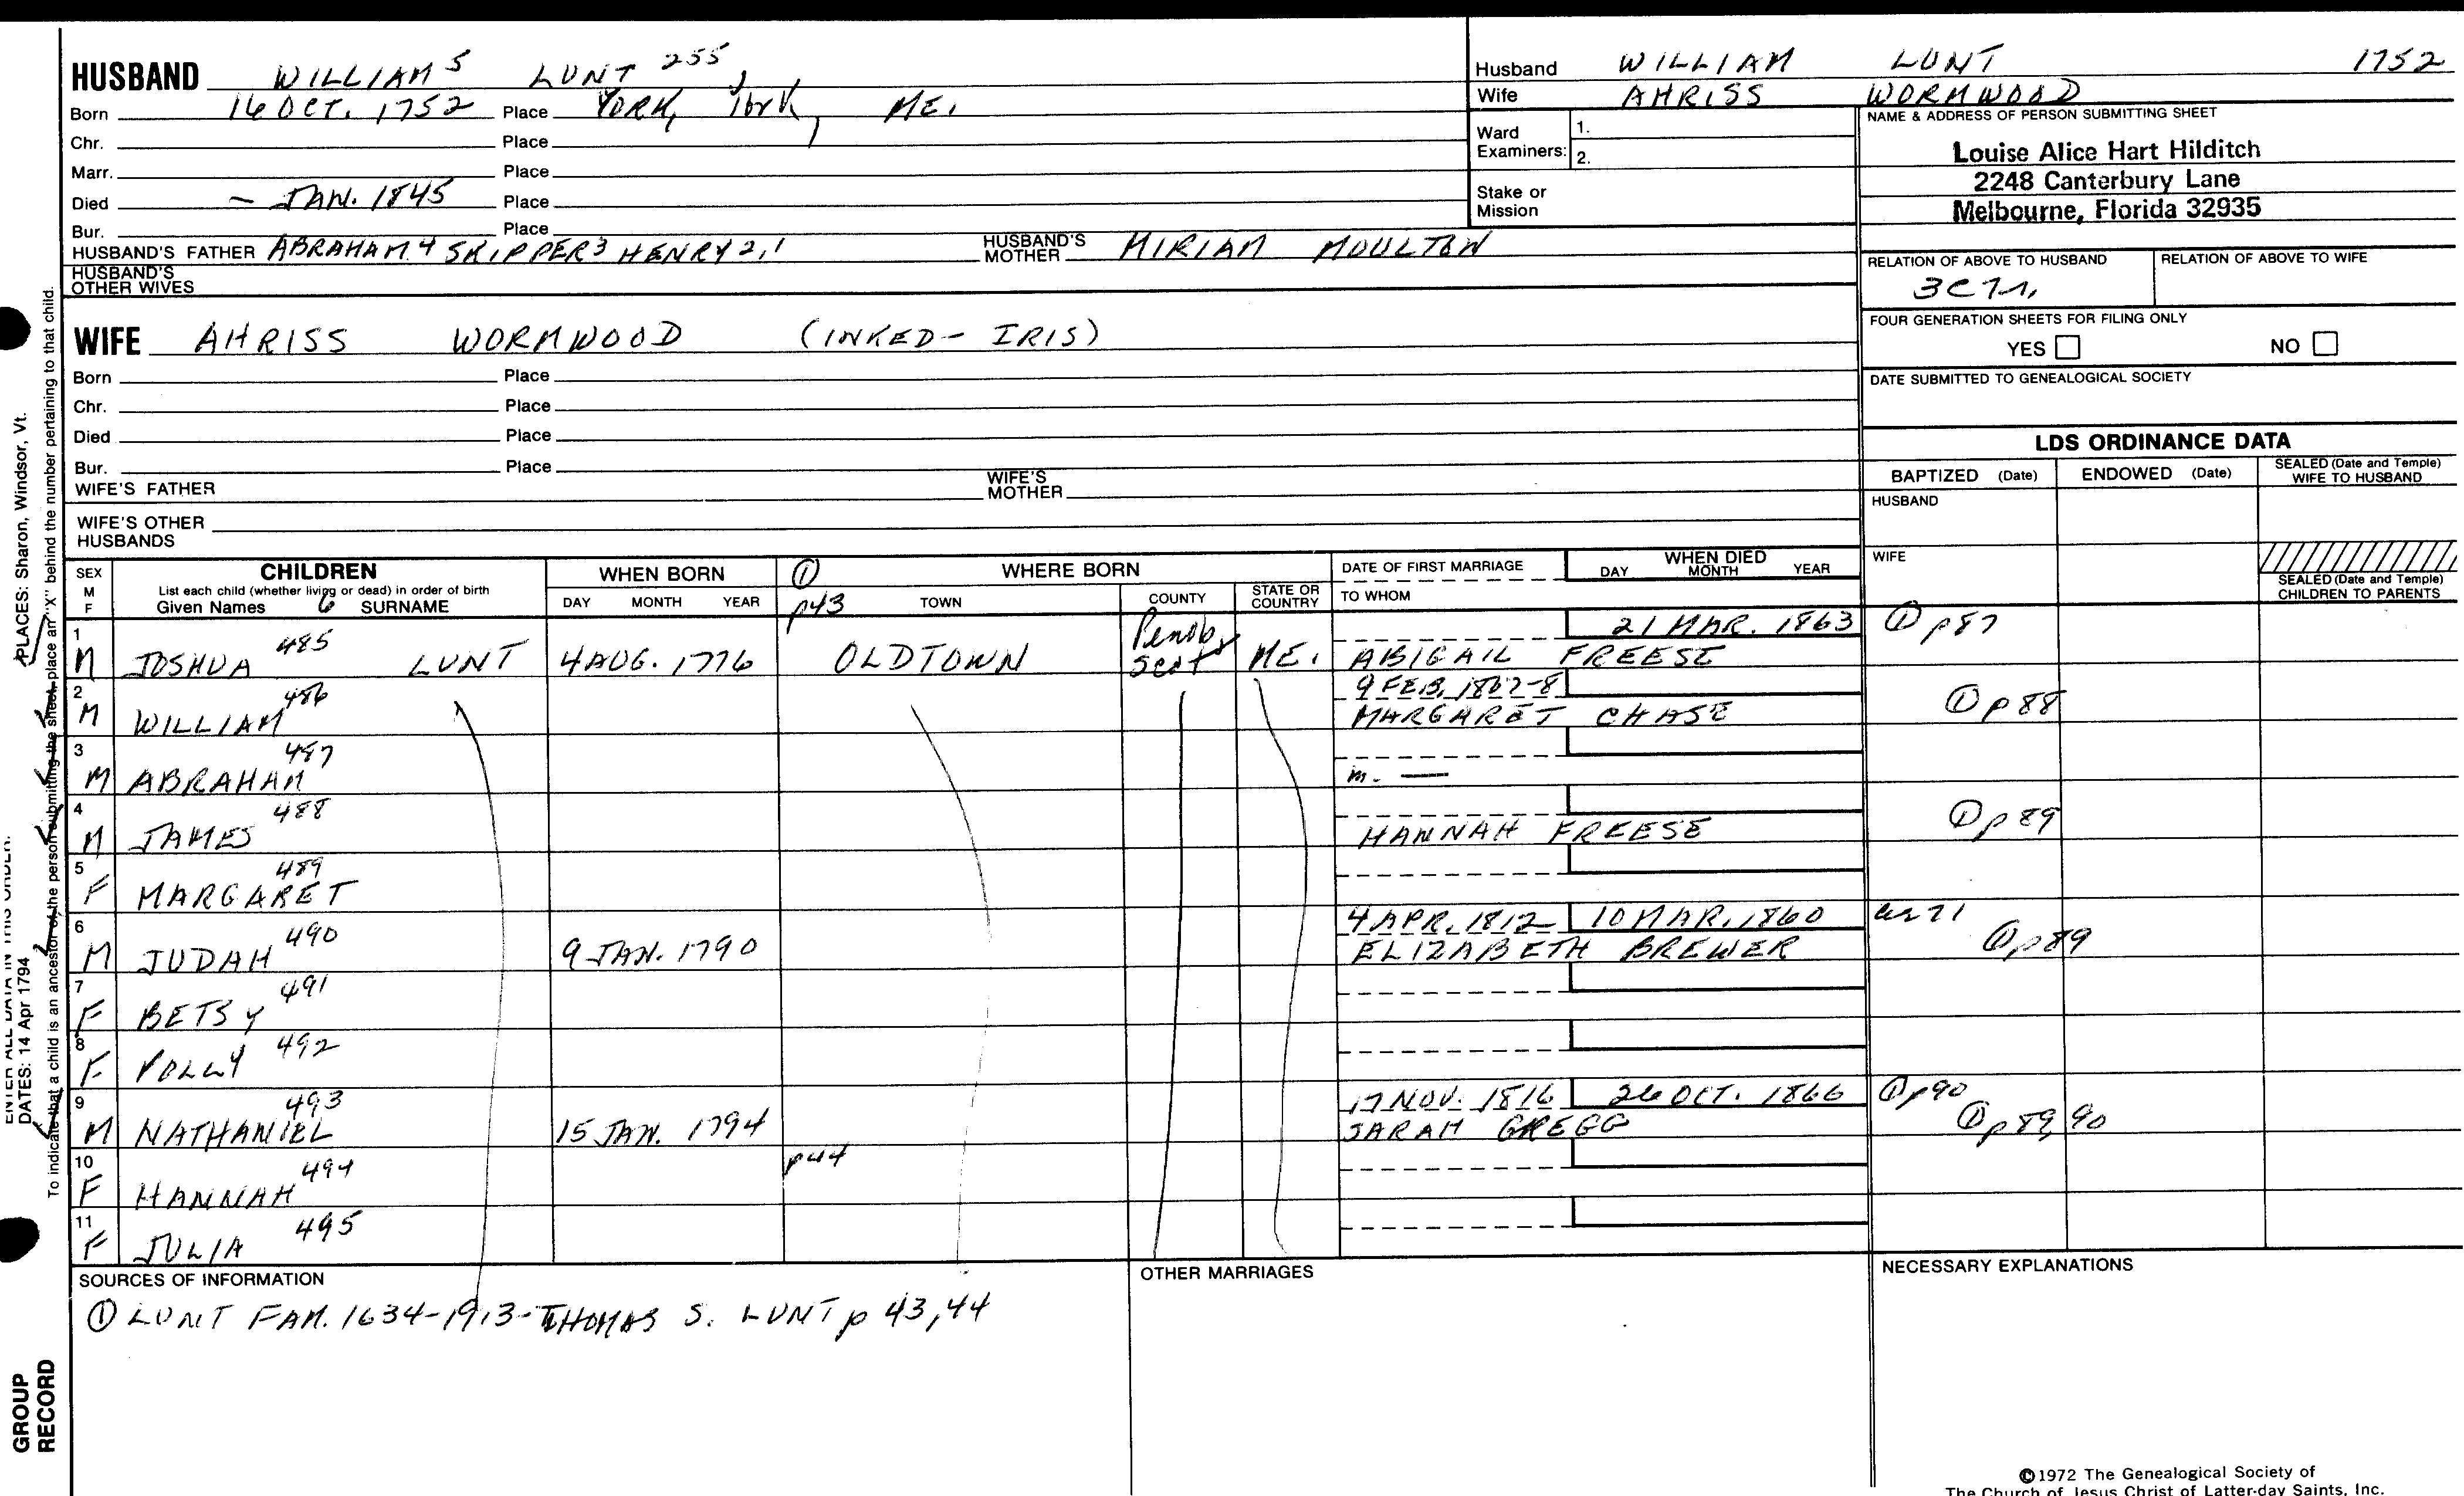 HUSBAND WILLIAM 5 LUNT 255
Born 16 OCT. 1752 Place YORK, York, ME.
Chr. Place
Marr. Place
Died — JAN. 1845 Place
Bur. Place
HUSBAND'S FATHER ABRAHAM 4 SKIPPER 3 HENRY 2,1 HUSBAND'S MOTHER MIRIAM MOULTON
HUSBAND'S OTHER WIVES
WIFE AHRISS WORMWOOD (INKED- IRIS)
Born Place
Chr. Place
Died Place
Bur. Place
WIFE'S FATHER WIFE'S MOTHER
WIFE'S OTHER HUSBANDS
Husband WILLIAM LUNT 1752
Wife AHRISS WORMWOOD
Ward Examiners: 1.
2.
Stake or Mission
NAME & ADDRESS OF PERSON SUBMITTING SHEET
Louise Alice Hart Hilditch
2248 Canterbury Lane
Melbourne, Florida 32935
RELATION OF ABOVE TO HUSBAND RELATION OF ABOVE TO WIFE
FOUR GENERATION SHEETS FOR FILING ONLY
YES NO
DATE SUBMITTED TO GENEALOGICAL SOCIETY
LDS ORDINANCE DATA
BAPTIZED (Date) ENDOWED (Date) SEALED (Date and Temple) WIFE TO HUSBAND
HUSBAND
WIFE
SEALED (Date and Temple) CHILDREN TO PARENTS
SEX M F
CHILDREN
List each child (whether living or dead) in order of birth
Given Names 6 SURNAME
WHEN BORN
DAY MONTH YEAR
① p43
WHERE BORN
TOWN COUNTY STATE OR COUNTRY
DATE OF FIRST MARRIAGE
TO WHOM
WHEN DIED
DAY MONTH YEAR
1 M JOSHUA 485 LUNT 4 AUG. 1776 OLDTOWN Penobscot ME. 21 MAR. 1863 ① p87
ABIGAIL FREESE
2 M WILLIAM 486 9 FEB. 1807-8 ① p88
MARGARET CHASE
3 M ABRAHAM 487 m. —
4 M JAMES 488 HANNAH FREESE ① p89
5 F MARGARET 489
6 M JUDAH 490 9 JAN. 1790 4 APR. 1812 10 MAR. 1860 ① p89
ELIZABETH BREWER
7 F BETSY 491
8 F POLLY 492
9 M NATHANIEL 493 15 JAN. 1794 17 NOV. 1816 26 OCT. 1866 ① p90
SARAH GREGG ① p89,90
10 F HANNAH 494 p44
11 F JULIA 495
SOURCES OF INFORMATION
① LUNT FAM. 1634-1913-THOMAS S. LUNT p 43,44
OTHER MARRIAGES
NECESSARY EXPLANATIONS
©1972 The Genealogical Society of
The Church of Jesus Christ of Latter-day Saints, Inc.
PLACES: Sharon, Windsor, Vt.
To indicate that a child is an ancestor of the person submitting the sheet, place an "X" behind the number pertaining to that child.
ENTER ALL DATA IN THIS ORDER:
DATES: 14 Apr 1794
GROUP
RECORD